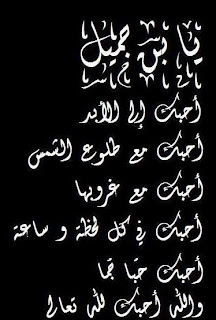 يا بس جميل
أحبك إلى الأبد
أحبك مع طلوع الشمس
أحبك مع غروبها
أحبك في كل لحظة و ساعة
أحبك حبا جما
والله أحبك لله تعالى